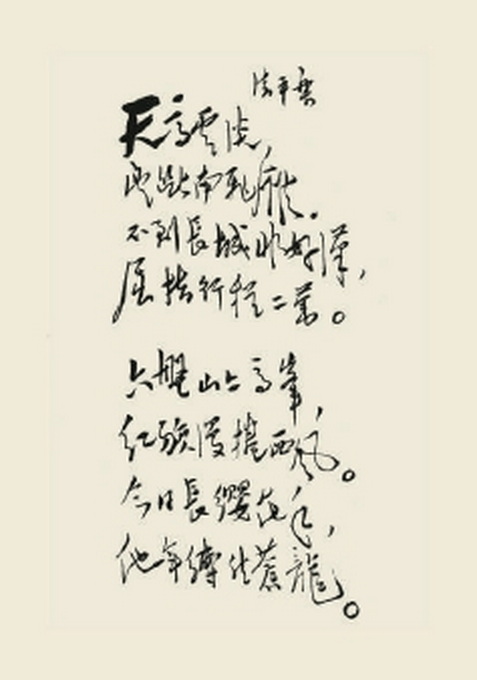 清平樂
天高雲淡，
望斷南飛雁。
不到長城非好漢，
屈指行程二萬。
六盤山上高峯，
紅旗漫捲西風。
今日長纓在手，
何時縛住蒼龍。